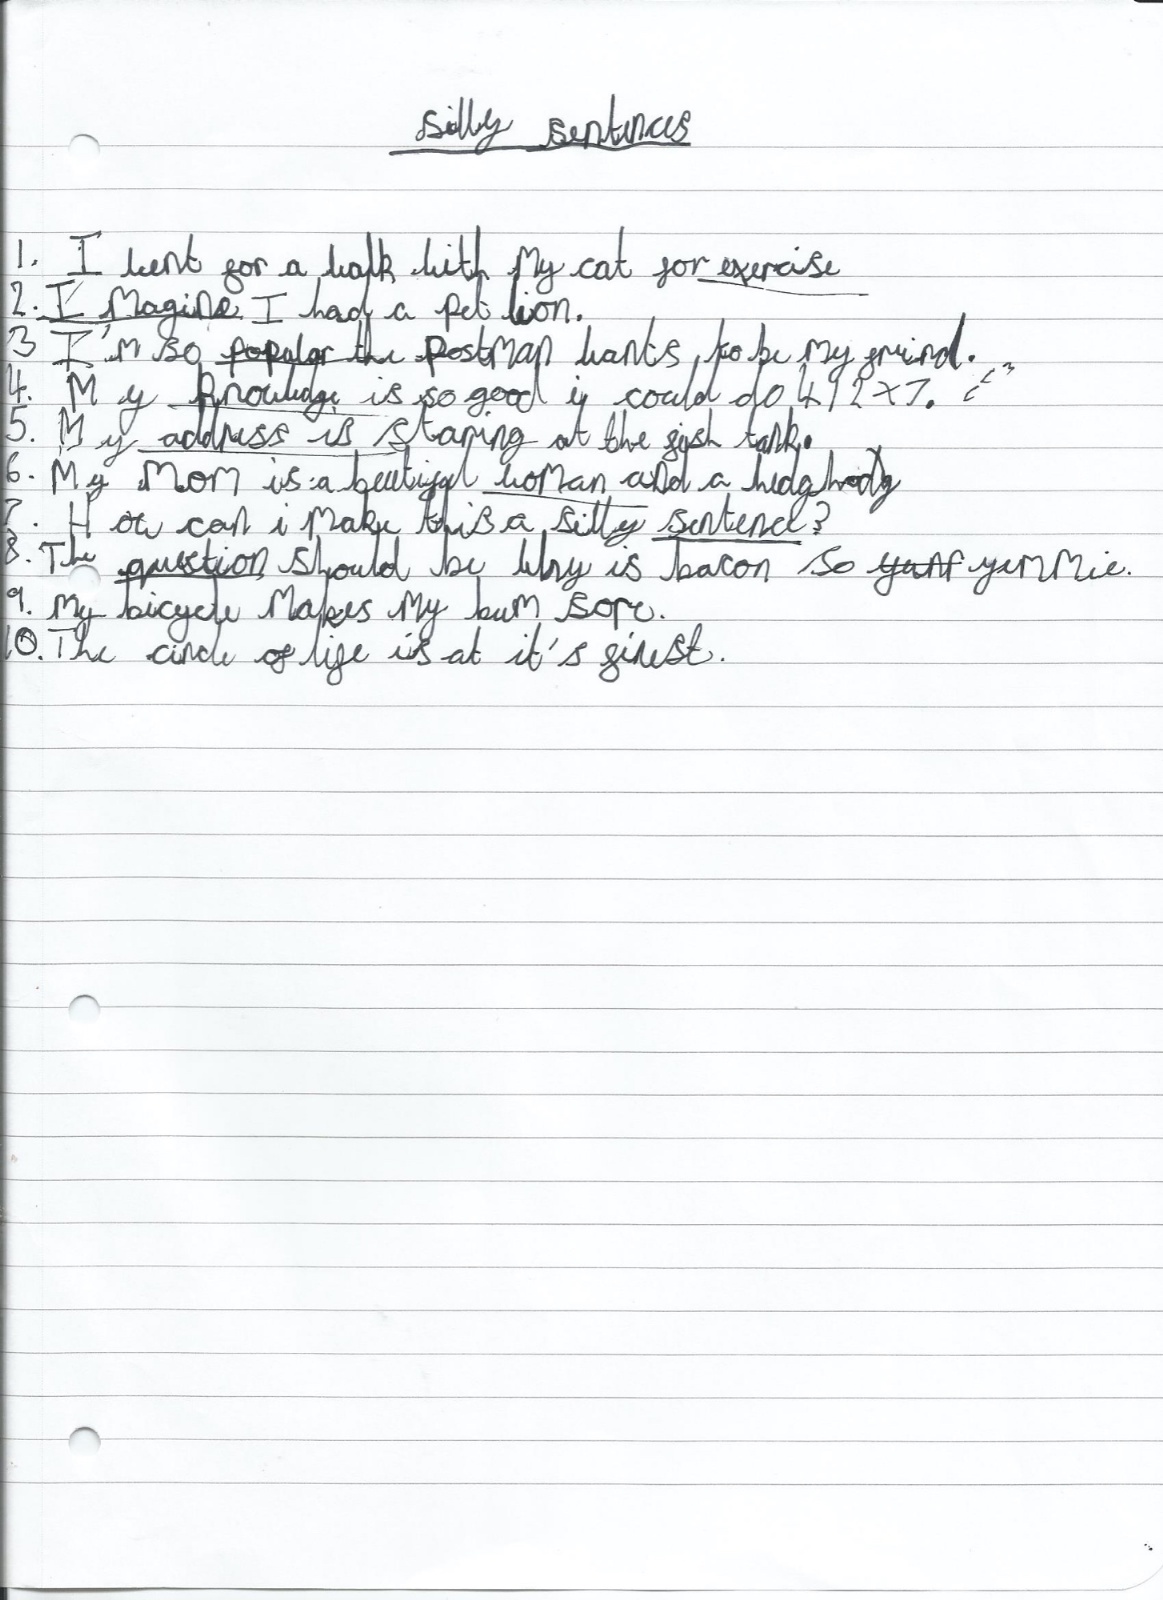 silly sentences
1. I went for a walk with My cat for exercise
2. I Magine I had a pet lion.
3 I'm so popular the Postman wants to be My freind.
4. My knowledge is so good i could do 492x7.
5. My address is staring at the fish tank.
6. My Mom is a beutiful woman and a hedghody
7. How can i make this a silly sentence?
8. The question should be Why is bacon so yummie.
9. My bicycle Makes My bum sore.
10. The circle of life is at it's finest.